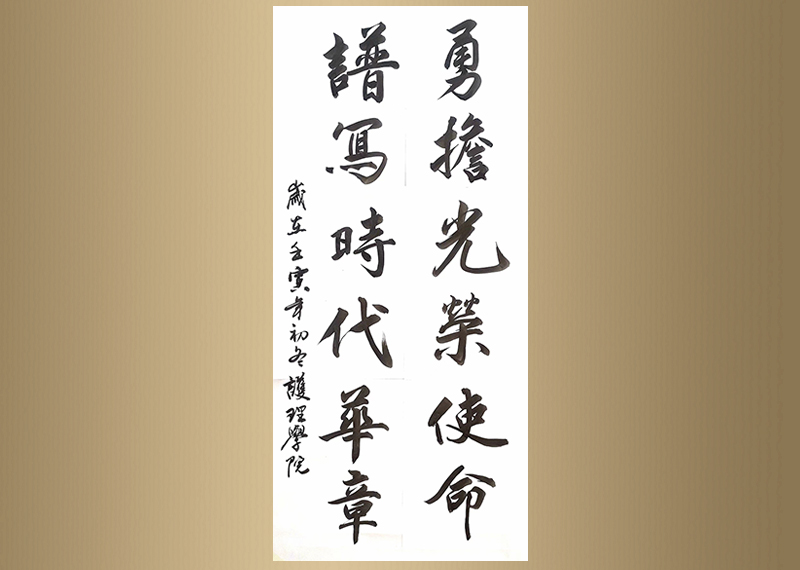 勇擔光榮使命
譜寫時代華章
歲在壬寅年初冬護理學院